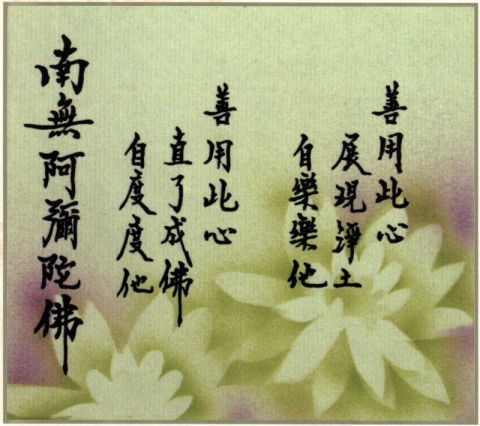 善用此心
展現淨土
自樂樂他
善用此心
直了成佛
自度度他
南無阿彌陀佛